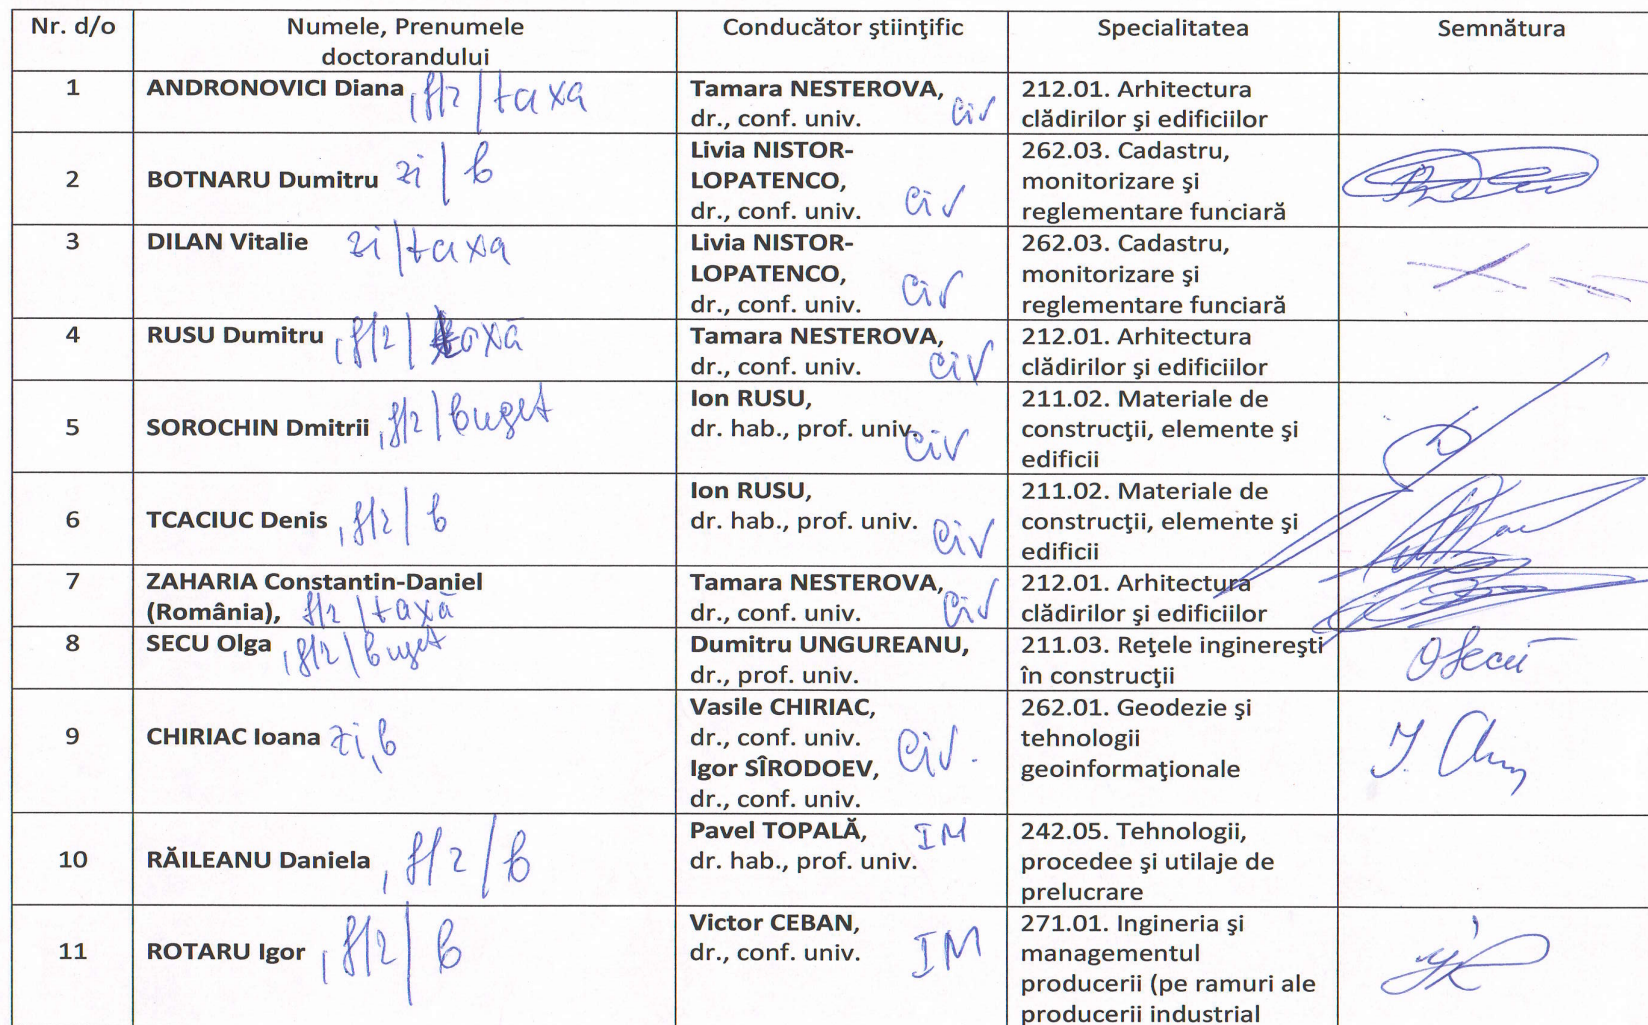 Nr. d/o
Numele, Prenumele
doctorandului
Conducător ştiinţific
Specialitatea
Semnătura
1
ANDRONOVICI Diana , f/2 | taxa
Tamara NESTEROVA,
dr., conf. univ. Civ
212.01. Arhitectura
clădirilor şi edificiilor
2
BOTNARU Dumitru zi | b
Livia NISTOR-
LOPATENCO,
dr., conf. univ. Civ
262.03. Cadastru,
monitorizare şi
reglementare funciară
3
DILAN Vitalie zi | taxa
Livia NISTOR-
LOPATENCO,
dr., conf. univ. Civ
262.03. Cadastru,
monitorizare şi
reglementare funciară
4
RUSU Dumitru , f/2 | taxă
Tamara NESTEROVA,
dr., conf. univ. Civ
212.01. Arhitectura
clădirilor şi edificiilor
5
SOROCHIN Dmitrii , f/2 | buget
Ion RUSU,
dr. hab., prof. univ. Civ
211.02. Materiale de
construcţii, elemente şi
edificii
6
TCACIUC Denis , f/2 | b
Ion RUSU,
dr. hab., prof. univ. Civ
211.02. Materiale de
construcţii, elemente şi
edificii
7
ZAHARIA Constantin-Daniel
(România), f/2 | taxă
Tamara NESTEROVA,
dr., conf. univ. Civ
212.01. Arhitectura
clădirilor şi edificiilor
8
SECU Olga , f/2 | buget
Dumitru UNGUREANU,
dr., prof. univ.
211.03. Reţele inginereşti
în construcţii
OSecu
9
CHIRIAC Ioana zi, b
Vasile CHIRIAC,
dr., conf. univ.
Igor SÎRODOEV, Civ.
dr., conf. univ.
262.01. Geodezie şi
tehnologii
geoinformaţionale
10
RĂILEANU Daniela , f/2 / b
Pavel TOPALĂ, IM
dr. hab., prof. univ.
242.05. Tehnologii,
procedee şi utilaje de
prelucrare
11
ROTARU Igor , f/2 | b
Victor CEBAN,
dr., conf. univ. IM
271.01. Ingineria şi
managementul
producerii (pe ramuri ale
producerii industrial